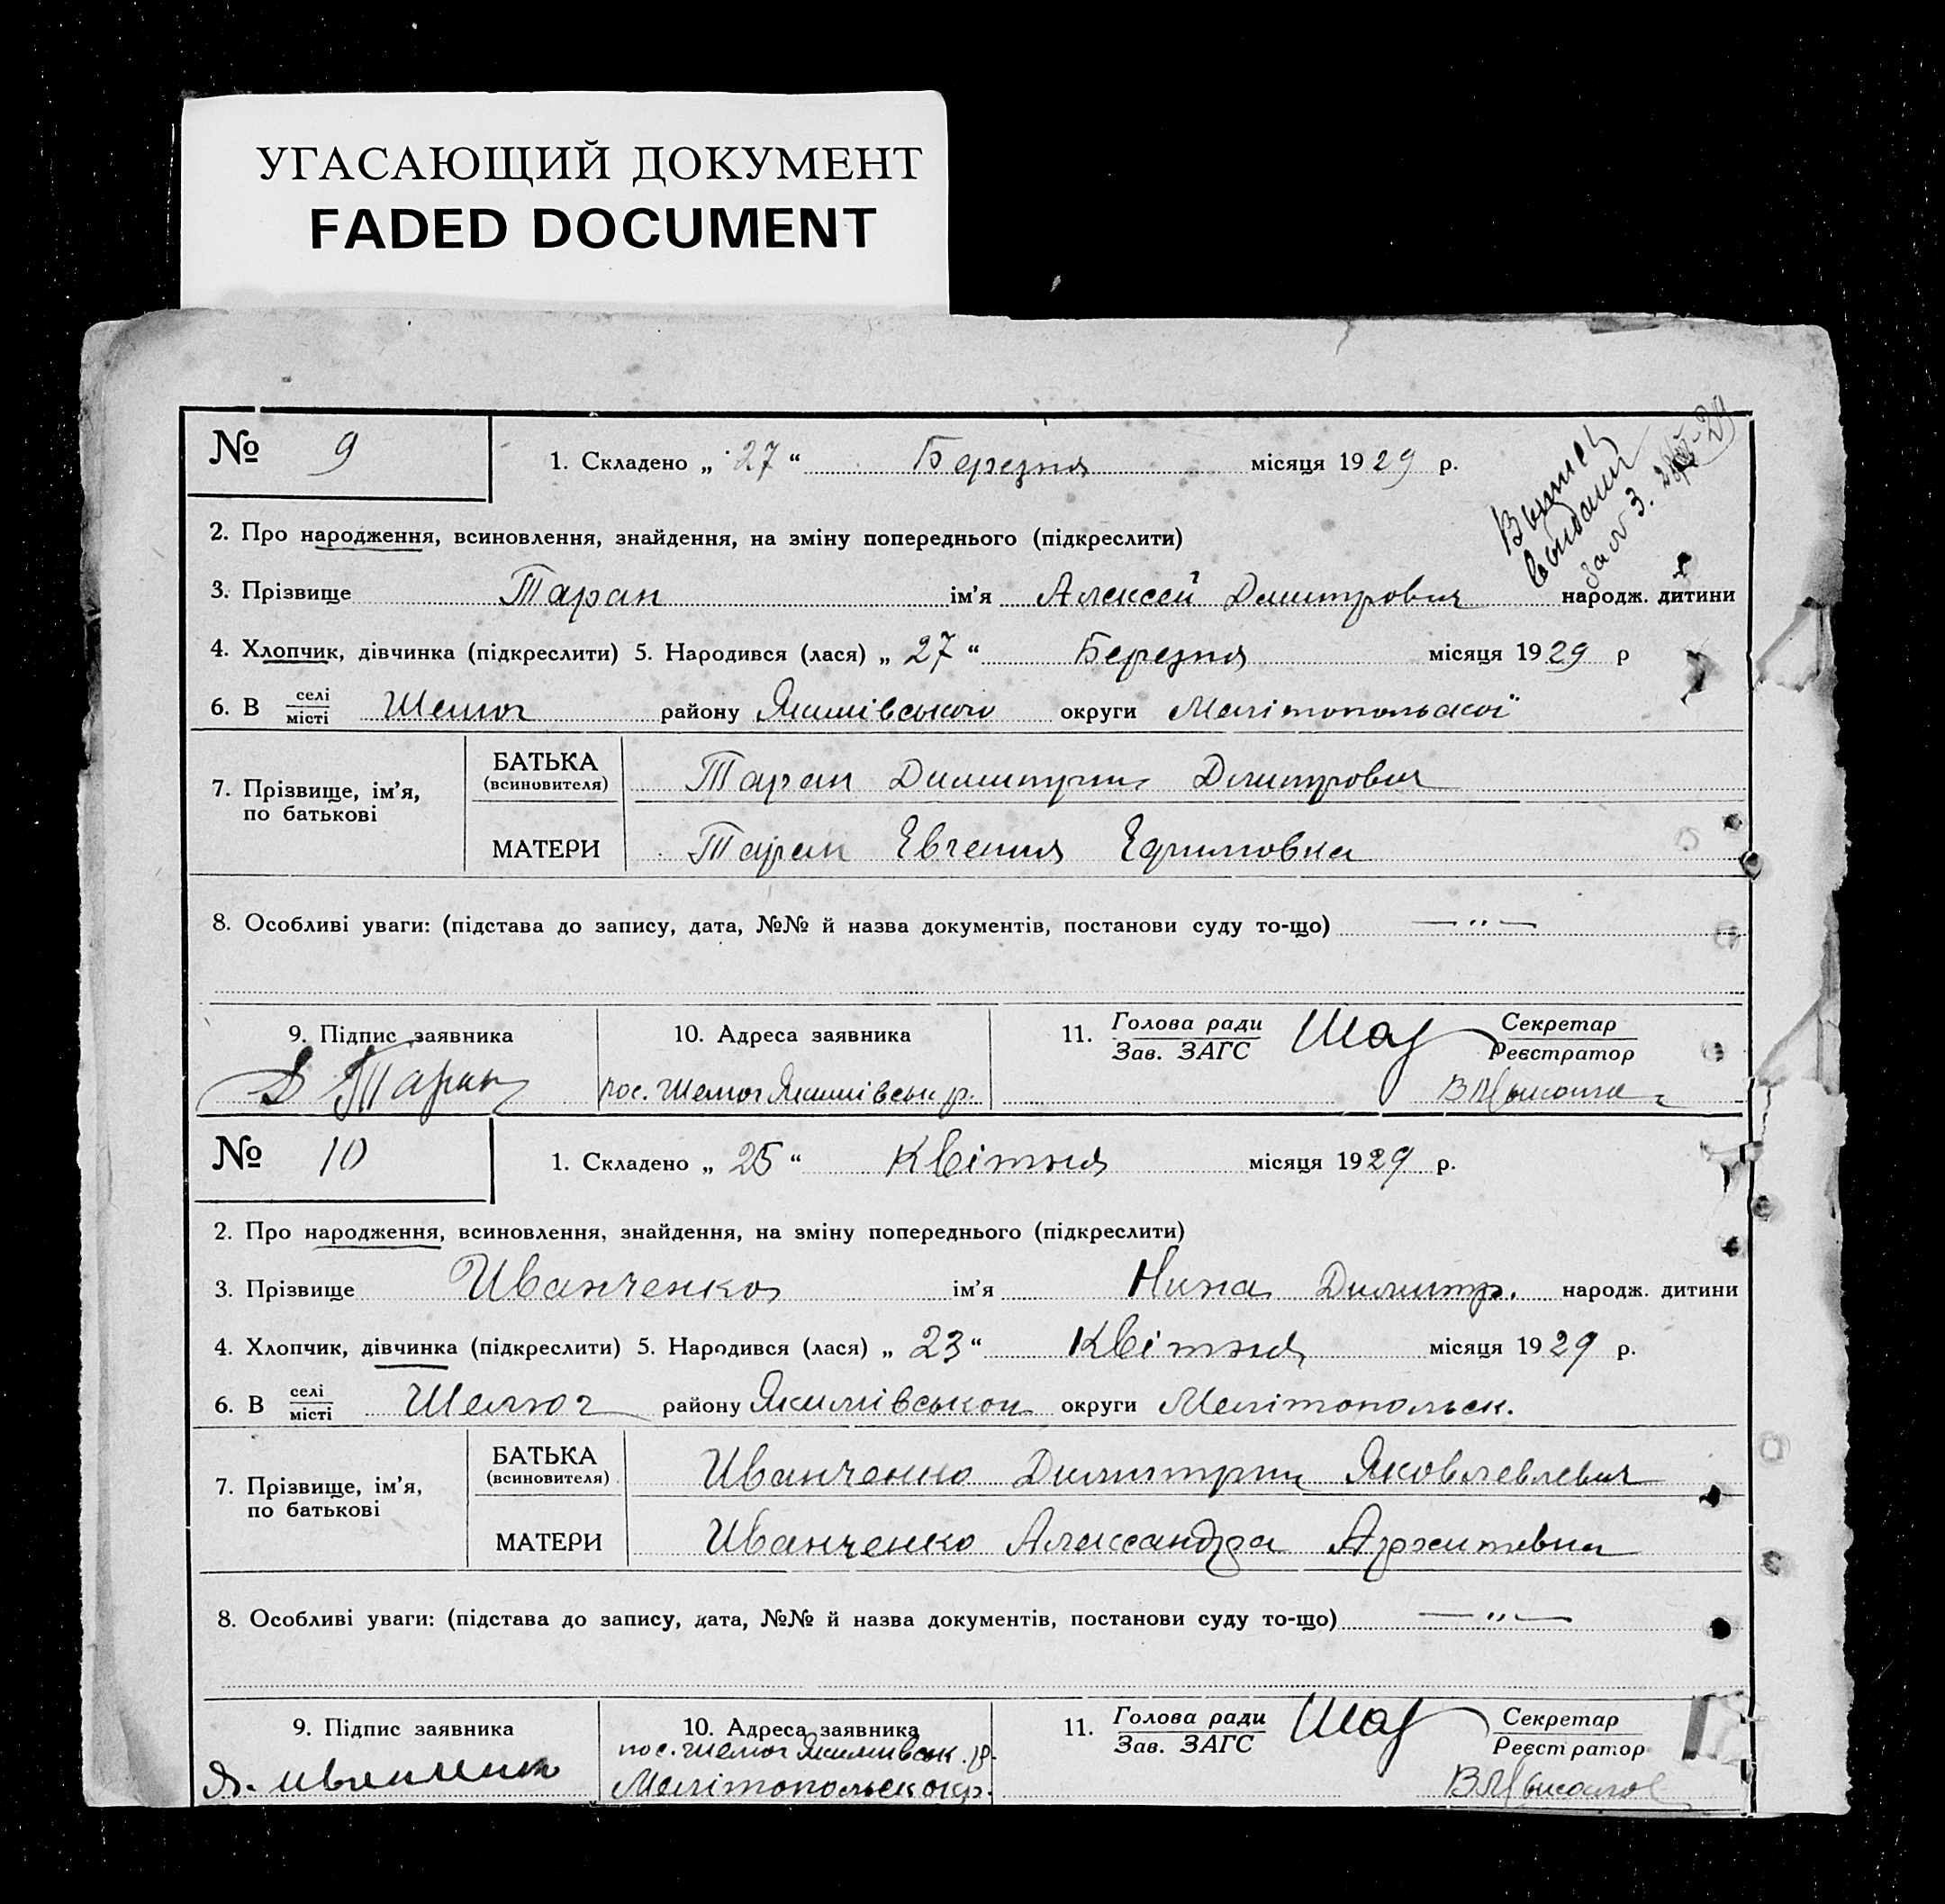 УГАСАЮЩИЙ ДОКУМЕНТ
FADED DOCUMENT
№ 9
1. Складено „ 27 “ Березня місяця 1929 р.
2. Про народження, всиновлення, знайдення, на зміну попереднього (підкреслити)
3. Прізвище Таран ім’я Алексей Дмитрович народж. дитини
4. Хлопчик, дівчинка (підкреслити) 5. Народився (лася) „ 27 “ Березня місяця 1929 р
6. В селі/місті Шелюг району Якимівського округи Мелітопольскої
7. Прізвище, ім’я, по батькові
БАТЬКА (всиновителя) Таран Димитрий Дмитрович
МАТЕРИ Таран Евгения Ефимовна
8. Особливі уваги: (підстава до запису, дата, №№ й назва документів, постанови суду то-що) — „ —
9. Підпис заявника 10. Адреса заявника 11. Голова ради/Зав. ЗАГС Секретар/Реєстратор
Д Таран пос. Шелюг Якимівськ р.
№ 10
1. Складено „ 25 “ Квітня місяця 1929 р.
2. Про народження, всиновлення, знайдення, на зміну попереднього (підкреслити)
3. Прізвище Иванченко ім’я Нина Димитр. народж. дитини
4. Хлопчик, дівчинка (підкреслити) 5. Народився (лася) „ 23 “ Квітня місяця 1929 р.
6. В селі/місті Шелюг району округи Мелітопольск.
7. Прізвище, ім’я, по батькові
БАТЬКА (всиновителя) Иванченко Димитрий
МАТЕРИ Иванченко Александра
8. Особливі уваги: (підстава до запису, дата, №№ й назва документів, постанови суду то-що) — „ —
9. Підпис заявника 10. Адреса заявника 11. Голова ради/Зав. ЗАГС Секретар/Реєстратор
пос. Шелюг Якимивськ. р.
Мелітопольск окр.